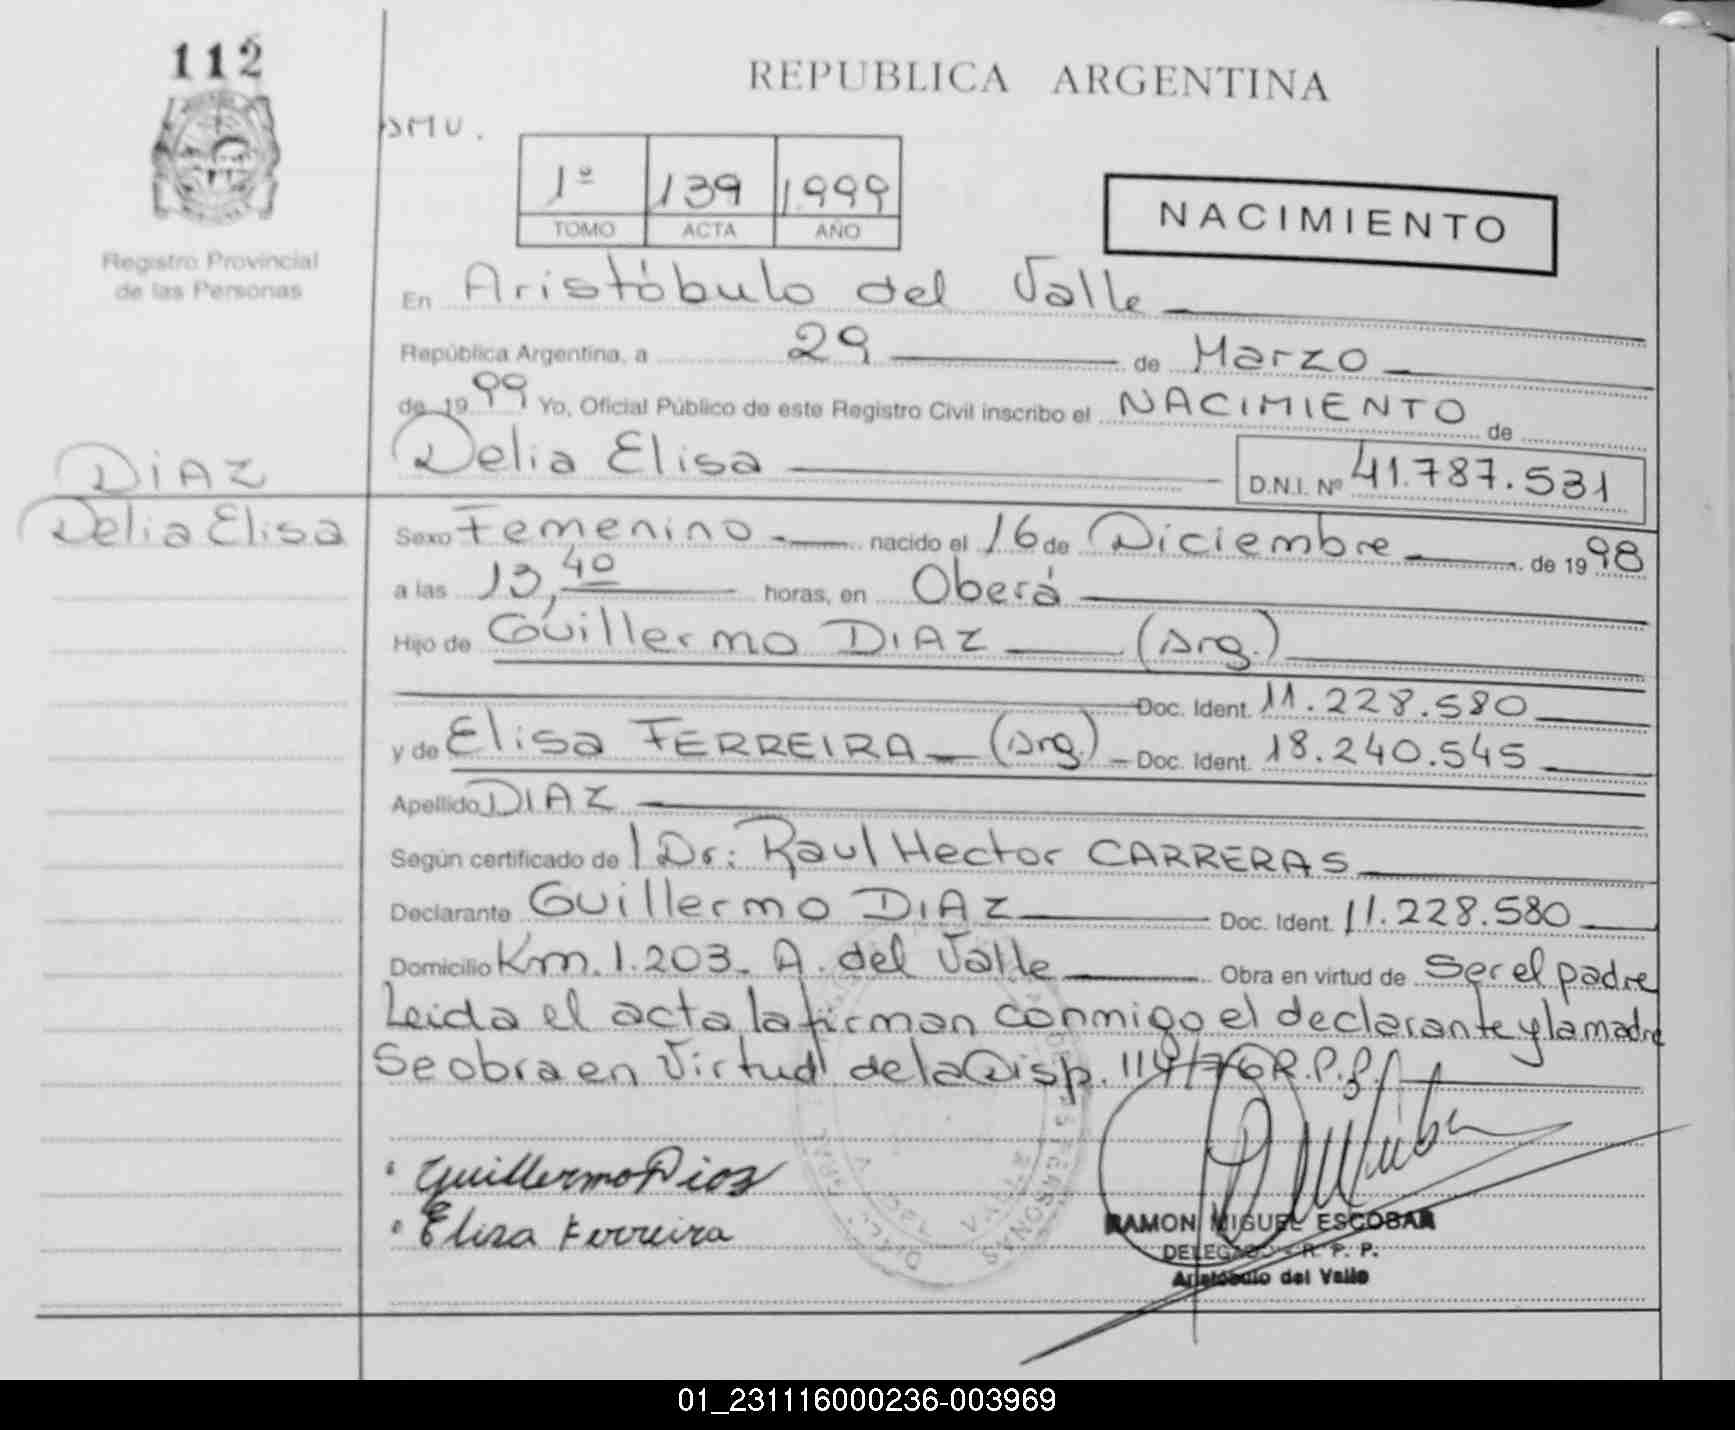 112
Registro Provincial
de las Personas
REPUBLICA ARGENTINA
1º 139 1.999
TOMO ACTA AÑO
NACIMIENTO
En Aristóbulo del Valle
República Argentina, a 29 de Marzo
de 1999 Yo, Oficial Público de este Registro Civil inscribo el NACIMIENTO de
Delia Elisa D.N.I. Nº 41.787.531
DIAZ
Delia Elisa
Sexo Femenino nacido el 16 de Diciembre de 1998
a las 13,40 horas, en Oberá
Hijo de Guillermo DIAZ (Arg.)
Doc. Ident. 11.228.580
y de Elisa FERREIRA (Arg.) Doc. Ident. 18.240.545
Apellido DIAZ
Según certificado de l Dr: Raul Hector CARRERAS
Declarante Guillermo DIAZ Doc. Ident. 11.228.580
Domicilio Km. 1.203. A. del Valle Obra en virtud de Ser el padre
Leida el acta la firman conmigo el declarante y la madre
Se obra en Virtud de la Disp. 114/76 R.P.P.
Guillermo Dias
Elisa Ferreira
RAMON MIGUEL ESCOBAR
DELEGADO - R. P. P.
Aristóbulo del Valle
01_231116000236-003969